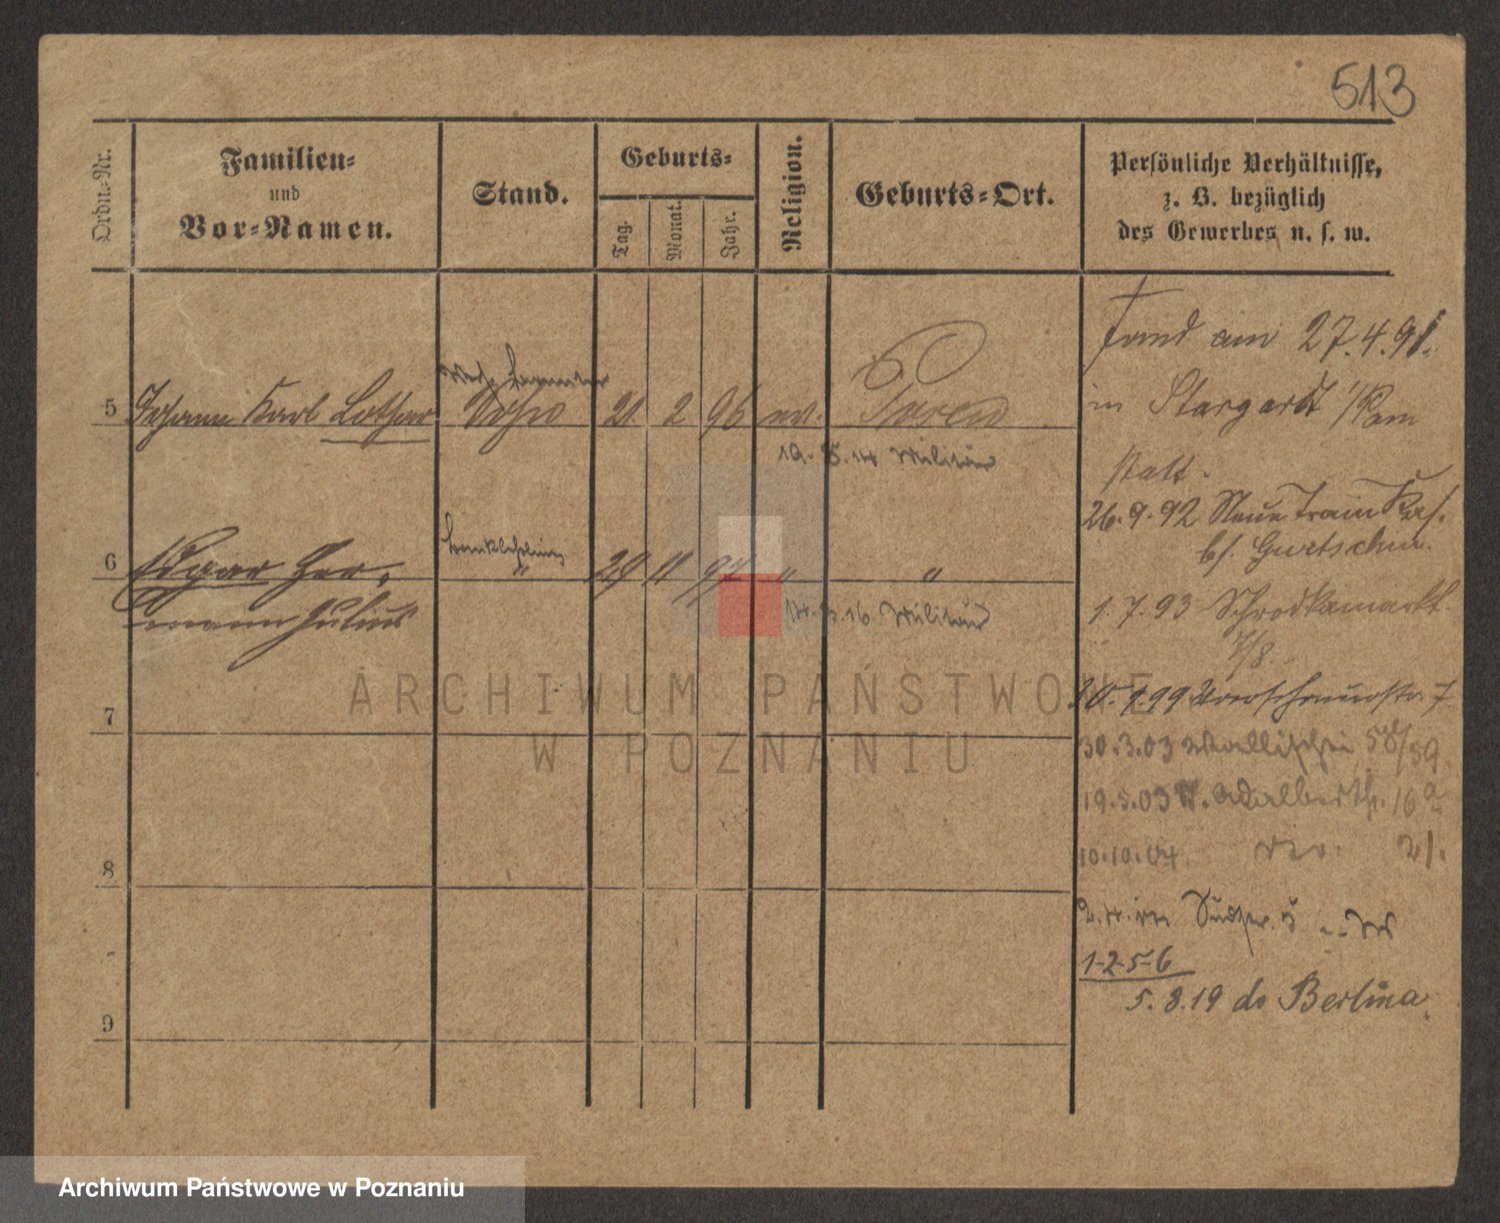 513
Ordn.-Nr.
Familien-
und
Vor-Namen.
Stand.
Geburts-
Tag.
Monat.
Jahr.
Religion.
Geburts-Ort.
Persönliche Verhältnisse,
z. B. bezüglich
des Gewerbes u. s. w.
fand am 27.4.91.
5 Johann Karl Lothar Sohn 21 2 96 ev. Posen
in Stargardt i/Pom
statt.
19. 8. 14 Militär
26.9.92 Neue Train Kas.
bf. Gurtschin.
6 Edgar Her-
mann Julius
" 29 11 97 " "
16 Militär
1.7.93 Schrodkamarkt
7/8.
7
30.3.03 Wallischei 58/59
19.5.03 St. Adalbertstr. 16a
8
10.10.04 21.
1-2-5-6
5.8.19 do Berlina
9
ARCHIWUM PAŃSTWOWE
W POZNANIU
Archiwum Państwowe w Poznaniu